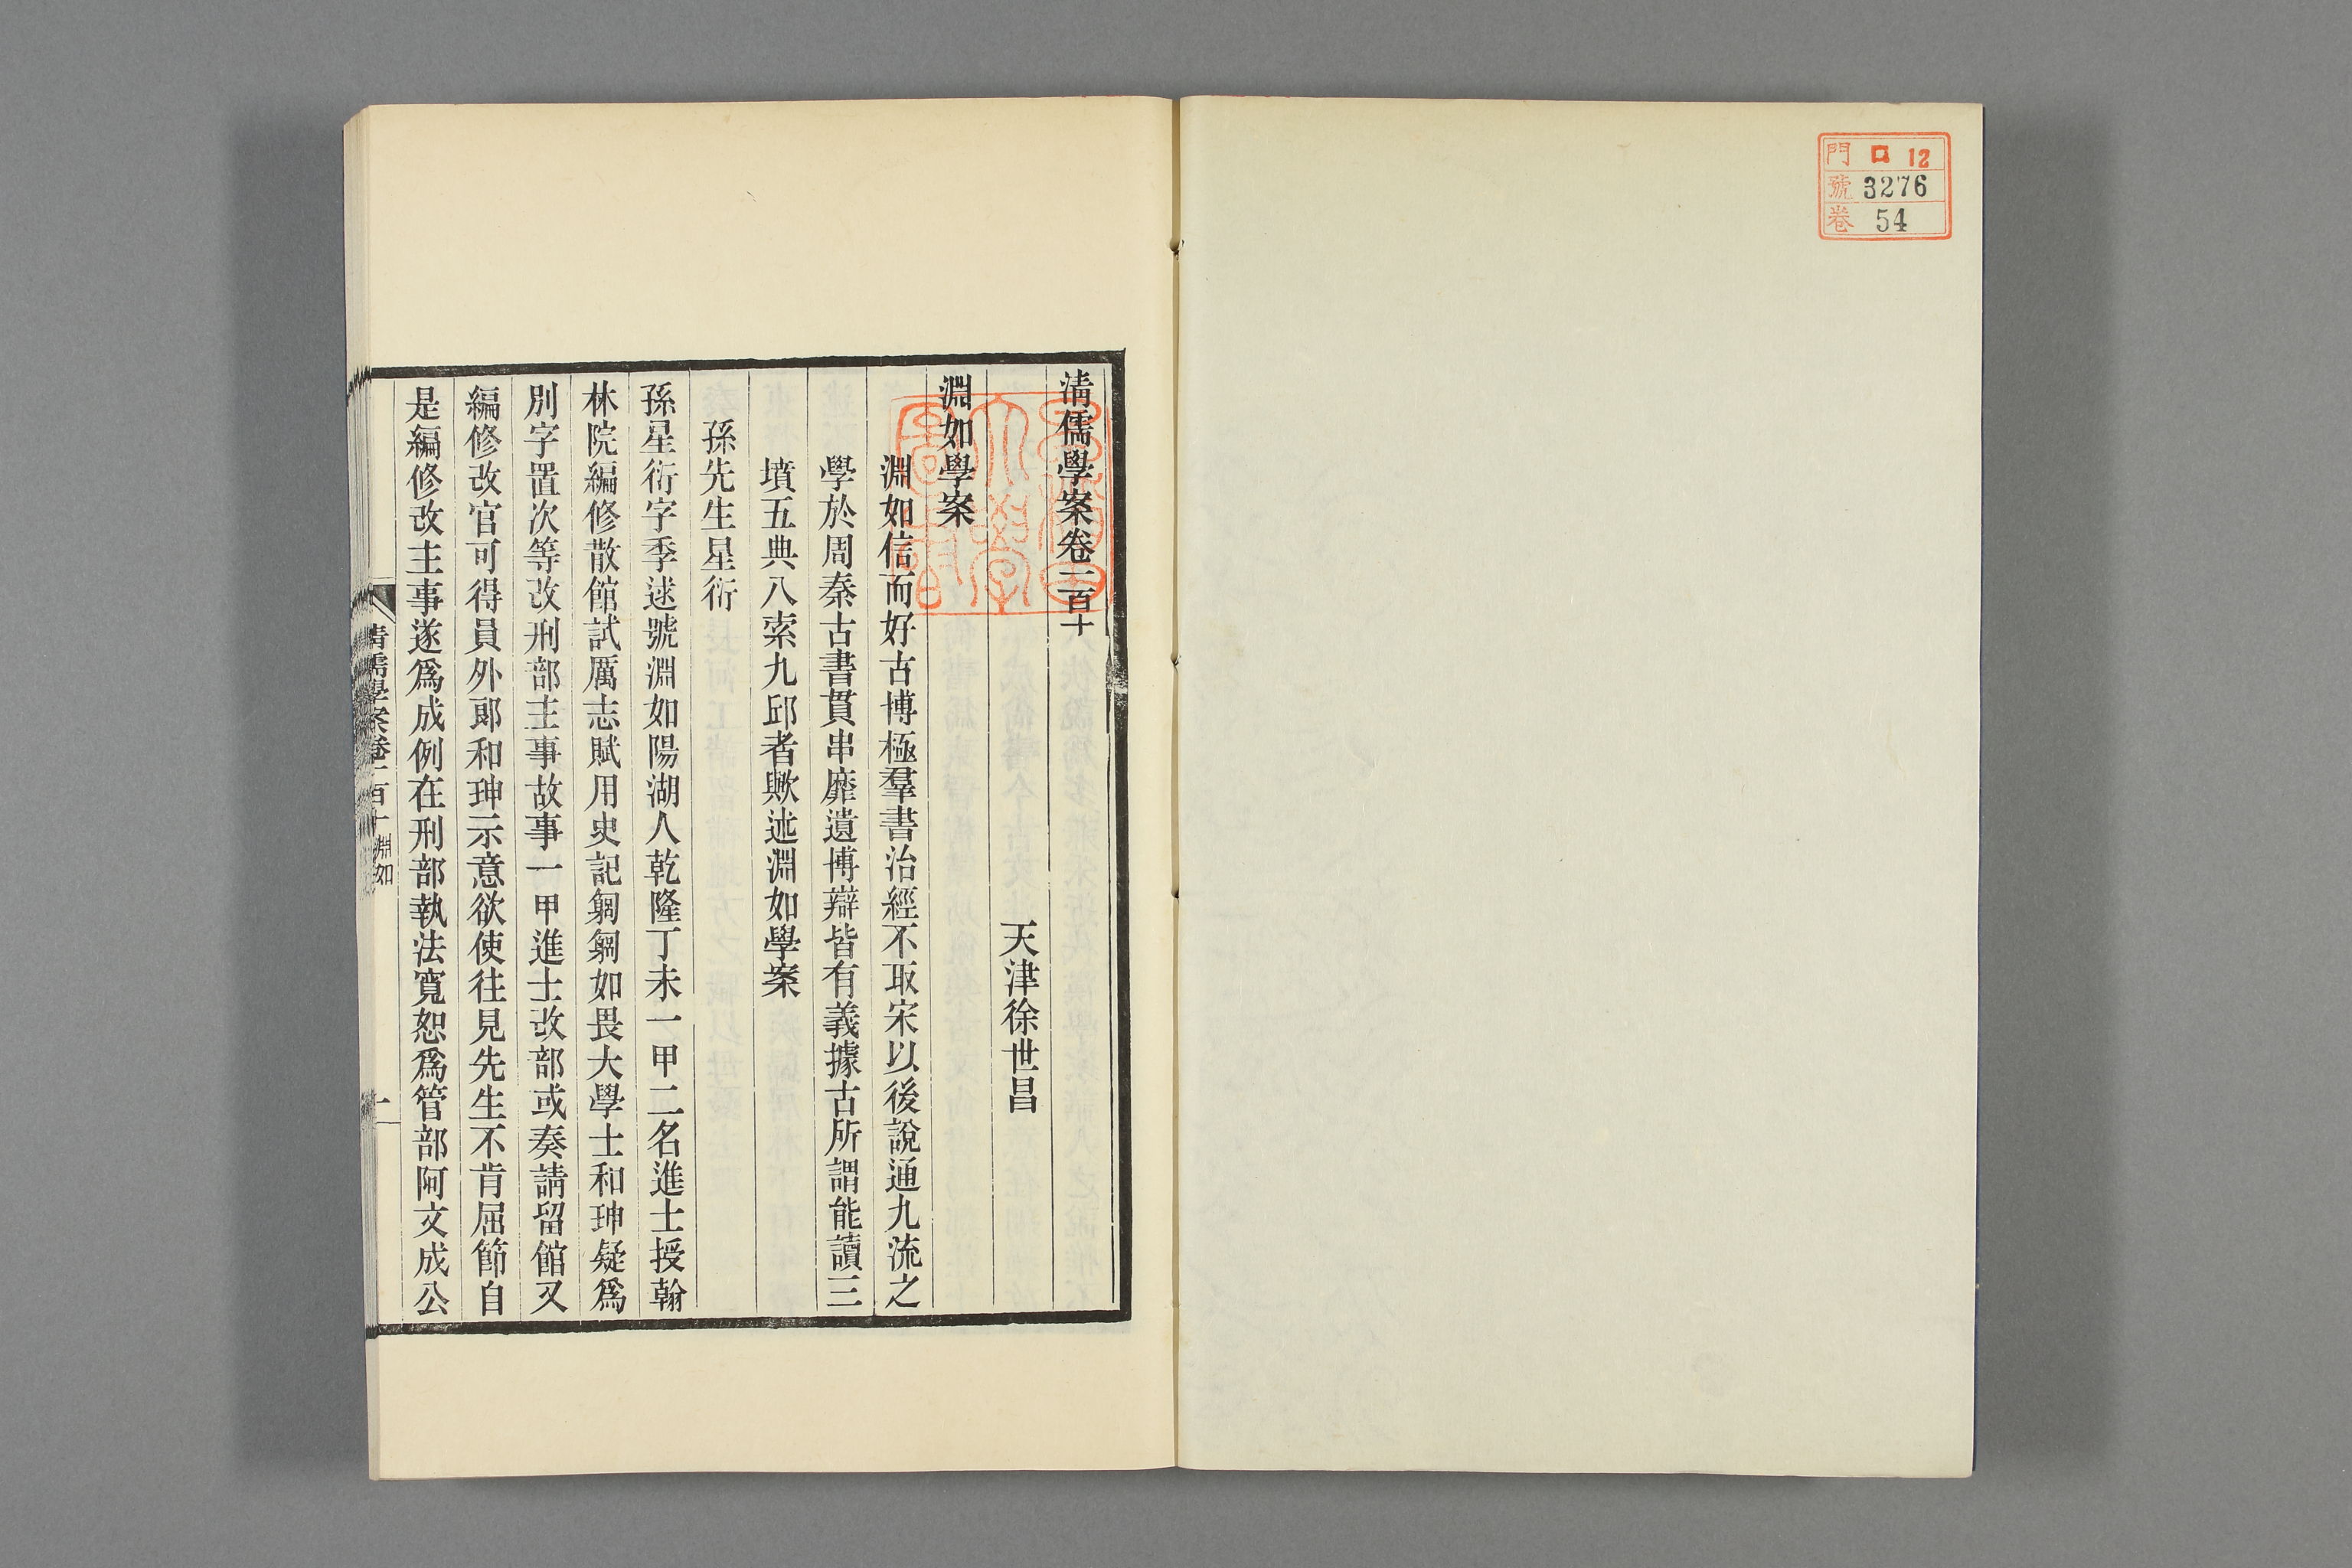 門 ロ 12
號 3276
卷 54
清儒學案卷一百十
天津徐世昌
淵如學案
淵如信而好古博極羣書治經不取宋以後說通九流之
學於周秦古書貫串靡遺博辯皆有義據古所謂能讀三
墳五典八索九邱者歟述淵如學案
孫先生星衍
孫星衍字季逑號淵如陽湖人乾隆丁未一甲二名進士授翰
林院編修散館試厲志賦用史記匔匔如畏大學士和珅疑爲
別字置次等改刑部主事故事一甲進士改部或奏請留館又
編修改官可得員外郞和珅示意欲使往見先生不肯屈節自
是編修改主事遂爲成例在刑部執法寬恕爲管部阿文成公
清儒學案卷一百十 淵如
一